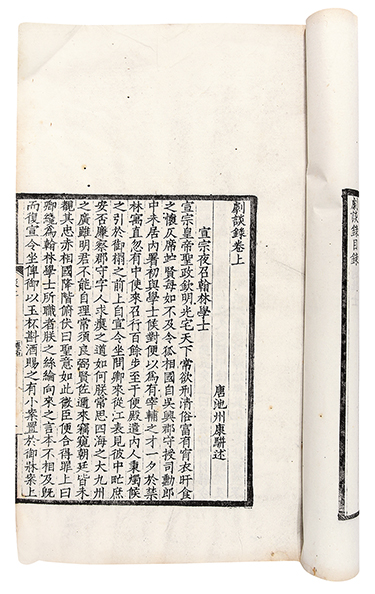 劇談錄目錄
劇談錄卷上
唐池州康駢述
宣宗夜召翰林學士
宣宗皇帝聖政欽明光宅天下常欲刑清俗富有宵衣旰食
之懷仄席賢每如不及令狐相國自吳興郡守授司勳郎
中未居內署初與學士俟對便以為有宰輔之才一夕於禁
林寓直忽有中使來召行百餘步至于便殿遣內人秉燭候
之引於御榻之前上自宣令坐問卿來從江表見彼中甿庶
安否廉察郡守字人求瘼之道如何朕常思四海之大九州
之廣雖明君不能自理常須良弼賢佐邇來竊窺朝廷皆未
覩其忠赤相國降階俯伏曰聖意如此微臣便合得罪上曰
卿纔為翰林學士所職者朕之絲綸向來之言本不相及既
而復宣令坐俾御以玉杯斟酒賜之有小案置於御牀案上